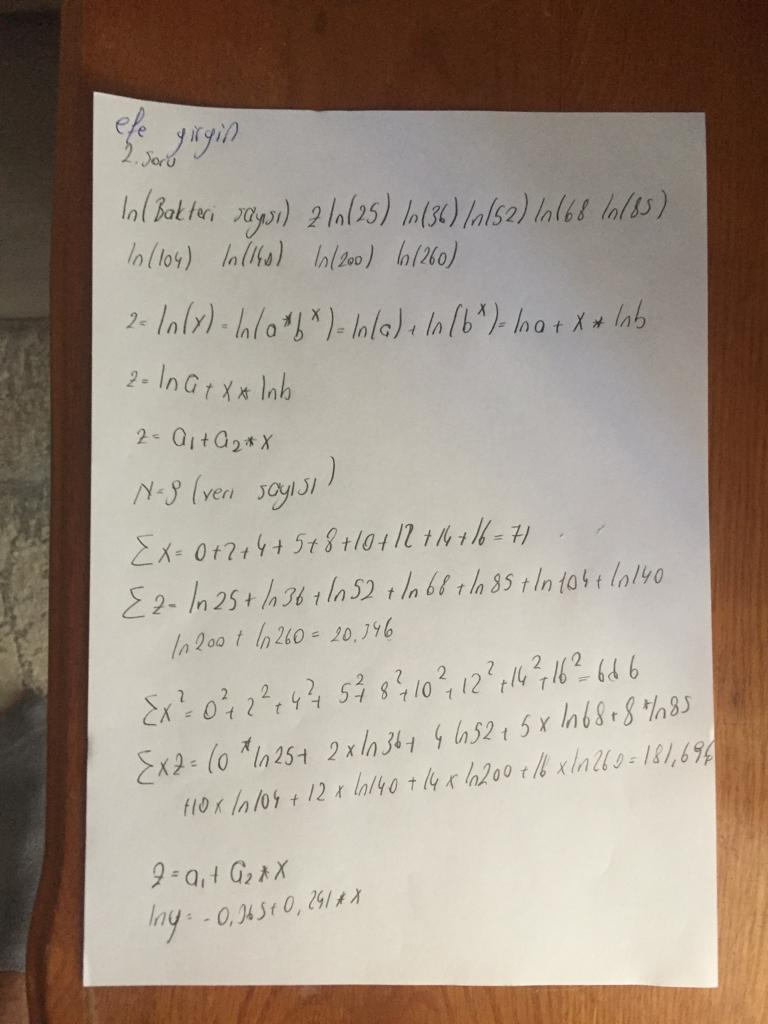 efe girgin
2. soru
ln(Bakteri sayısı) z ln(25) ln(36) ln(52) ln(68 ln(85)
ln(104) ln(140) ln(200) ln(260)
z= ln(y)= ln(a*b^x)= ln(a)+ ln(b^x)= lna + x * lnb
z= lna + x* lnb
z= a₁+a₂*x
N=9 (veri sayısı)
∑x= 0+2+4+5+8+10+12+14+16=71
∑z= ln25+ln36+ln52+ln68+ln85+ln104+ln140
ln200 + ln260 = 20.346
∑x²= 0²+2²+4²+5²+8²+10²+12²+14²+16²=
∑xz= (0*ln25+ 2xln36+ 4 ln52+ 5 x ln68+8*ln85
+10 x ln104 + 12 x ln140 + 14 x ln200 + 16 x ln260=
z=a₁+ a₂*x
lny= -0,365+0,241*x